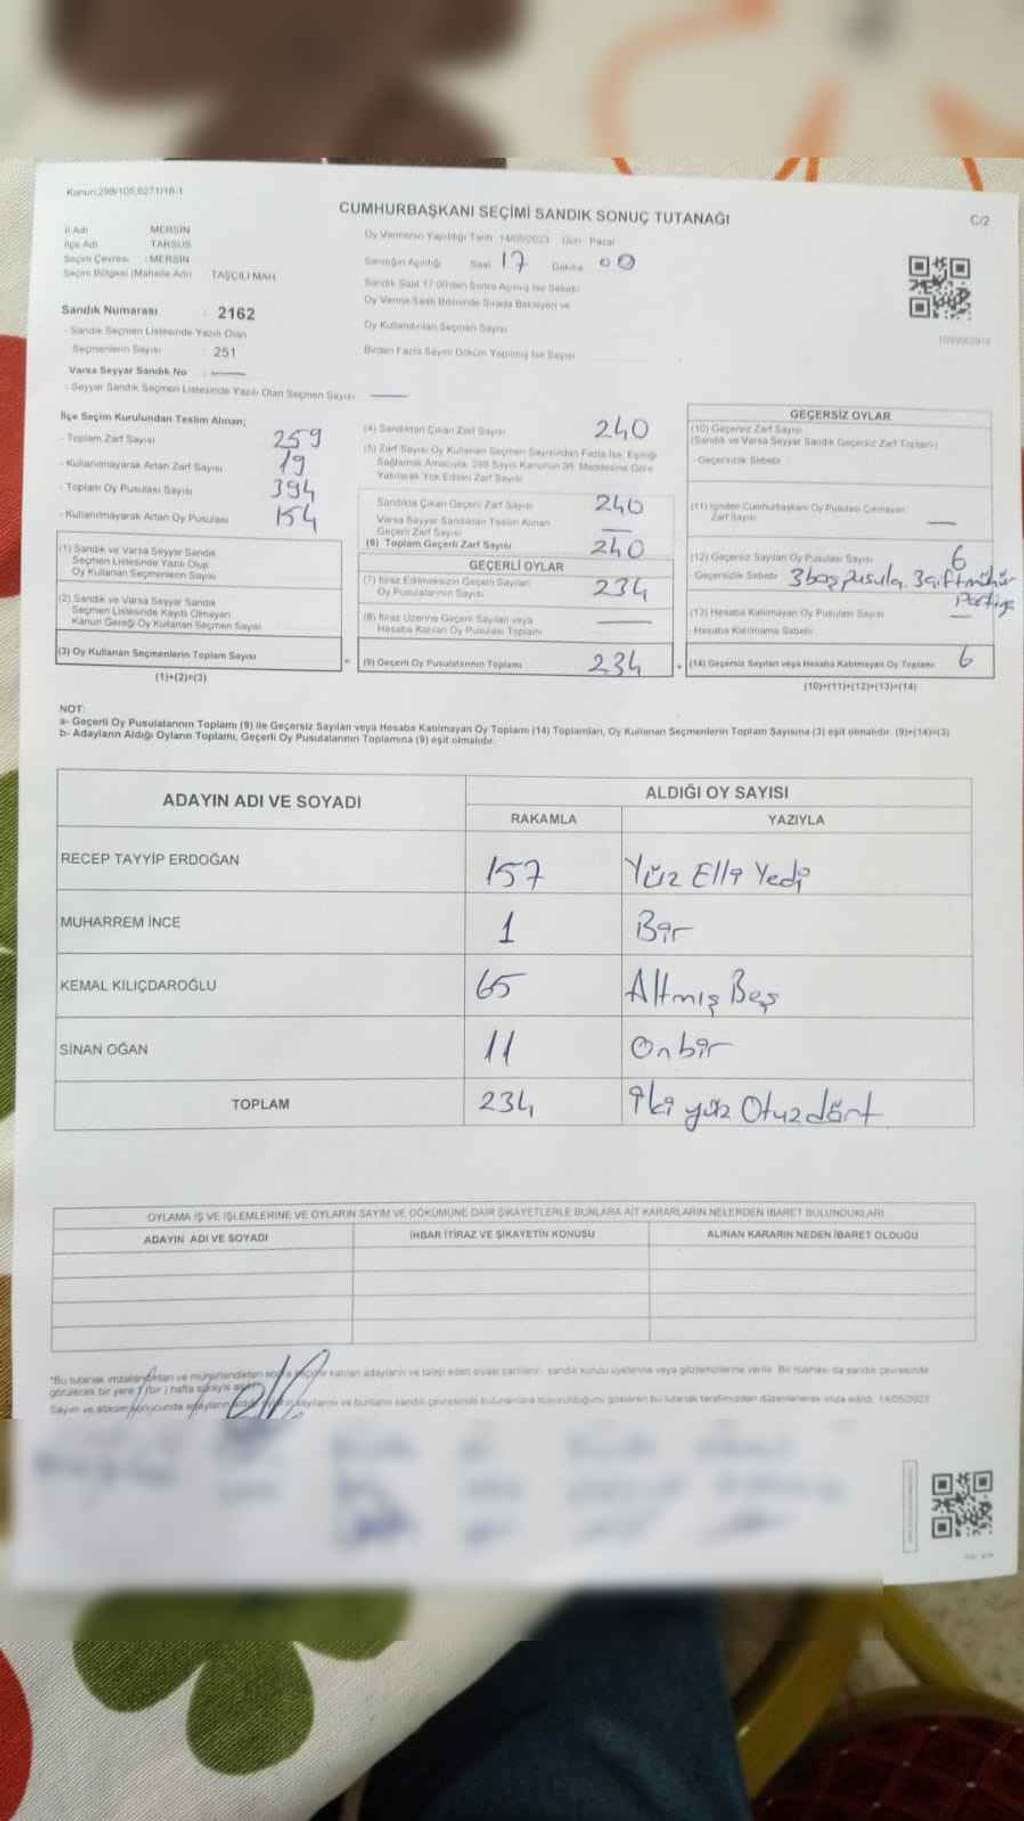 Kanun:298/105,6271/18-1
CUMHURBAŞKANI SEÇİMİ SANDIK SONUÇ TUTANAĞI
C/2
İl Adı MERSİN
İlçe Adı TARSUS
Seçim Çevresi : MERSİN
Seçim Bölgesi (Mahalle Adı) TAŞÇILI MAH.
Oy Vermenin Yapıldığı Tarih 14/05/2023 Gün Pazar
Sandığın Açıldığı Saat 17 Dakika 00
Sandık Saat 17.00'den Sonra Açılmış İse Sebebi
Oy Verme Saati Bitiminde Sırada Bekleyen ve
Oy Kullandırılan Seçmen Sayısı
Birden Fazla Sayım Döküm Yapılmış İse Sayısı
Sandık Numarası : 2162
- Sandık Seçmen Listesinde Yazılı Olan
Seçmenlerin Sayısı : 251
Varsa Seyyar Sandık No
- Seyyar Sandık Seçmen Listesinde Yazılı Olan Seçmen Sayısı
İlçe Seçim Kurulundan Teslim Alınan;
- Toplam Zarf Sayısı 259
- Kullanılmayarak Artan Zarf Sayısı 19
- Toplam Oy Pusulası Sayısı 394
- Kullanılmayarak Artan Oy Pusulası 154
(1) Sandık ve Varsa Seyyar Sandık
Seçmen Listesinde Yazılı Olup
Oy Kullanan Seçmenlerin Sayısı
(2) Sandık ve Varsa Seyyar Sandık
Seçmen Listesinde Kayıtlı Olmayan
Kanun Gereği Oy Kullanan Seçmen Sayısı
(3) Oy Kullanan Seçmenlerin Toplam Sayısı
(1)+(2)=(3)
(4) Sandıktan Çıkan Zarf Sayısı 240
(5) Zarf Sayısı Oy Kullanan Seçmen Sayısından Fazla İse, Eşitliği
Sağlamak Amacıyla 298 Sayılı Kanunun 98. Maddesine Göre
Yakılarak Yok Edilen Zarf Sayısı
Sandıkta Çıkan Geçerli Zarf Sayısı 240
Varsa Seyyar Sandıktan Teslim Alınan
Geçerli Zarf Sayısı —
(6) Toplam Geçerli Zarf Sayısı 240
GEÇERLİ OYLAR
(7) İtiraz Edilmeksizin Geçerli Sayılan
Oy Pusulalarının Sayısı 234
(8) İtiraz Üzerine Geçerli Sayılan veya
Hesaba Katılan Oy Pusulası Toplamı —
(9) Geçerli Oy Pusulalarının Toplamı 234
GEÇERSİZ OYLAR
(10) Geçersiz Zarf Sayısı
(Sandık ve Varsa Seyyar Sandık Geçersiz Zarf Toplamı)
- Geçersizlik Sebebi
(11) İçinden Cumhurbaşkanı Oy Pusulası Çıkmayan
Zarf Sayısı —
(12) Geçersiz Sayılan Oy Pusulası Sayısı 6
- Geçersizlik Sebebi 3 boş pusula, 3 çift mühür
(13) Hesaba Katılmayan Oy Pusulası Sayısı —
- Hesaba Katılmama Sebebi
(14) Geçersiz Sayılan veya Hesaba Katılmayan Oy Toplamı 6
(10)+(11)+(12)+(13)=(14)
NOT:
a- Geçerli Oy Pusulalarının Toplamı (9) ile Geçersiz Sayılan veya Hesaba Katılmayan Oy Toplamı (14) Toplamları, Oy Kullanan Seçmenlerin Toplam Sayısına (3) eşit olmalıdır. (9)+(14)=(3)
b- Adayların Aldığı Oyların Toplamı, Geçerli Oy Pusulalarının Toplamına (9) eşit olmalıdır.
ADAYIN ADI VE SOYADI
ALDIĞI OY SAYISI
RAKAMLA YAZIYLA
RECEP TAYYİP ERDOĞAN 157 Yüz Elli Yedi
MUHARREM İNCE 1 Bir
KEMAL KILIÇDAROĞLU 65 Altmış Beş
SİNAN OĞAN 11 Onbir
TOPLAM 234 iki yüz Otuz dört
OYLAMA İŞ VE İŞLEMLERİNE VE OYLARIN SAYIM VE DÖKÜMÜNE DAİR ŞİKAYETLERLE BUNLARA AİT KARARLARIN NELERDEN İBARET BULUNDUKLARI
ADAYIN ADI VE SOYADI
İHBAR İTİRAZ VE ŞİKAYETİN KONUSU
ALINAN KARARIN NEDEN İBARET OLDUĞU